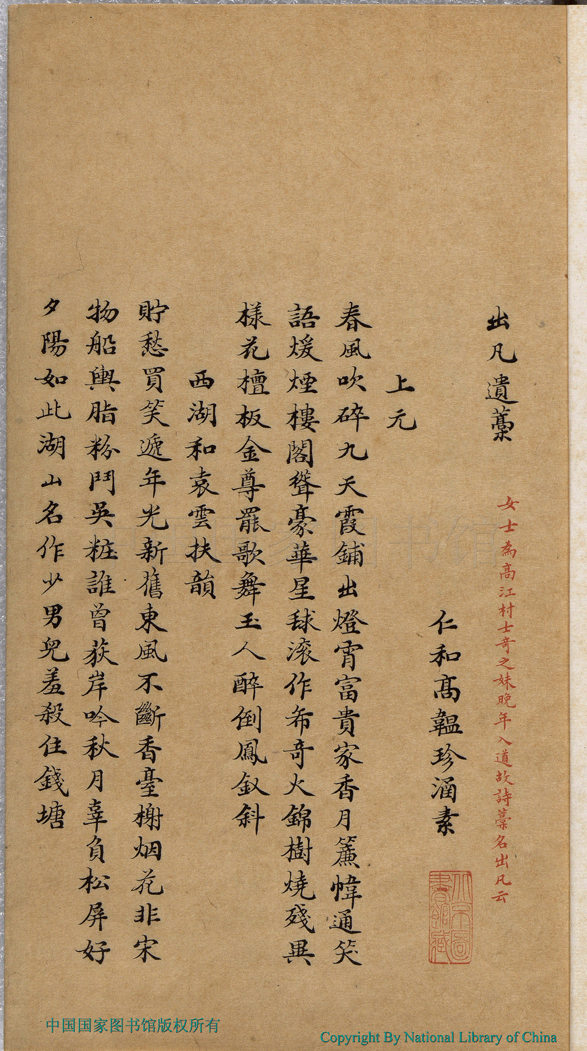 出凡遺藁
女士為高江村士奇之妹晚年入道故詩藁名出凡云
仁和高韞珍涵素
上元
春風吹碎九天霞鋪出燈宵富貴家香月簾幃通笑
語煖煙樓閣聳豪華星毬滾作希奇火錦樹燒殘異
樣花檀板金尊罷歌舞玉人醉倒鳳釵斜
西湖和袁雲扶韻
貯愁買笑遞年光新舊東風不斷香臺榭烟花非宋
物船輿脂粉鬥吳粧誰曾荻岸吟秋月辜負松屏好
夕陽如此湖山名作少男兒羞殺住錢塘
中国国家图书馆版权所有
Copyright By National Library of China